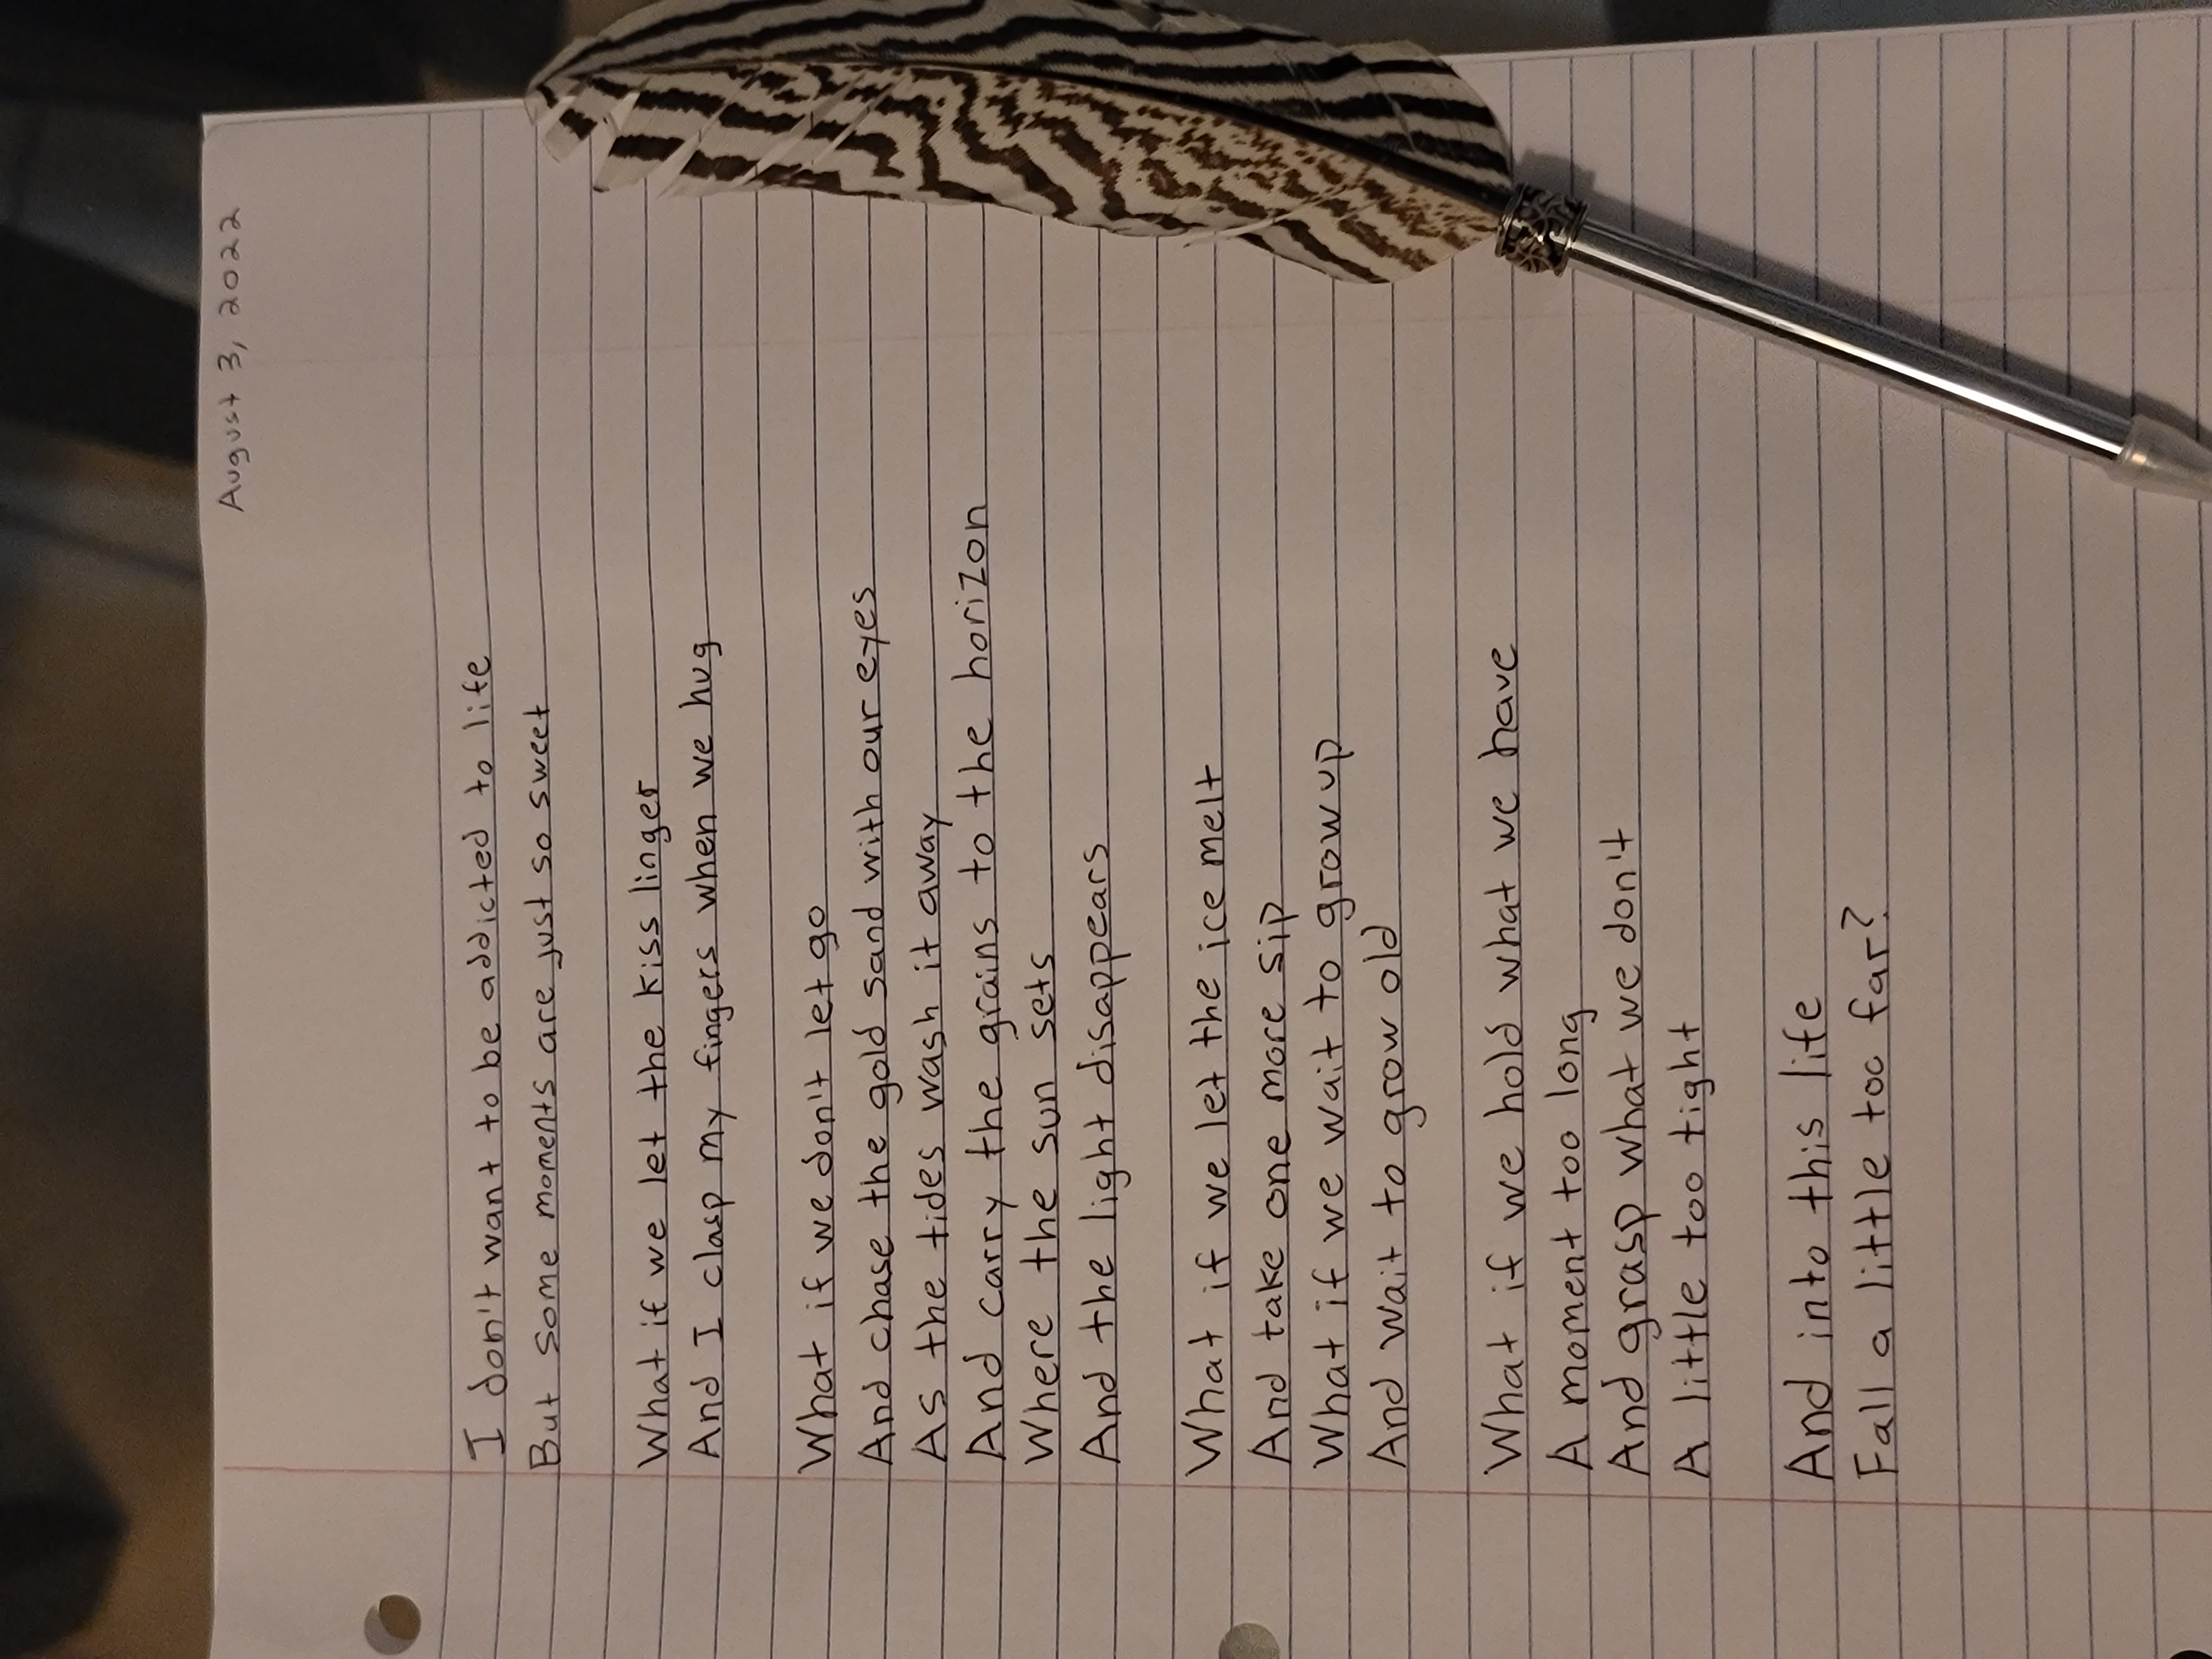 August 3, 2022
I don't want to be addicted to life
But some moments are just so sweet
What if we let the kiss linger
And I clasp my fingers when we hug
What if we don't let go
And chase the gold sand with our eyes
As the tides wash it away
And carry the grains to the horizon
Where the sun sets
And the light disappears
What if we let the ice melt
And take one more sip
What if we wait to grow up
And wait to grow old
What if we hold what we have
A moment too long
And grasp what we don't
A little too tight
And into this life
Fall a little too far?